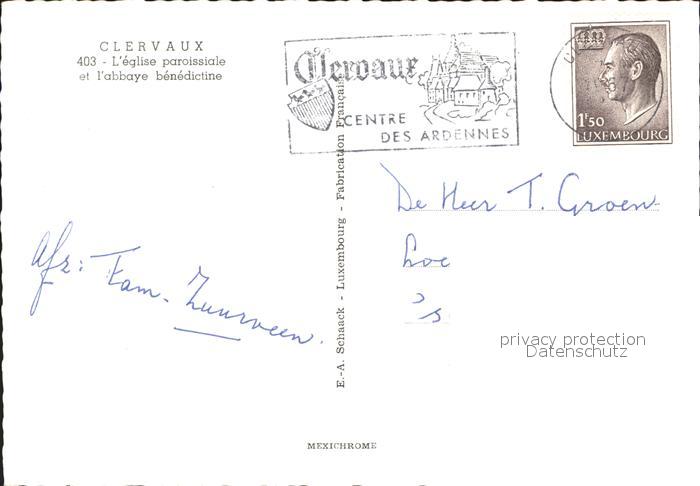 CLERVAUX
403 - L'église paroissiale
et l'abbaye bénédictine
Clervaux
CENTRE
DES ARDENNES
1F50
LUXEMBOURG
De Heer T. Groen
Loe
's
Afz: Fam. Zuurveen.
E.-A. Schaack - Luxembourg - Fabrication Française
privacy protection
Datenschutz
MEXICHROME